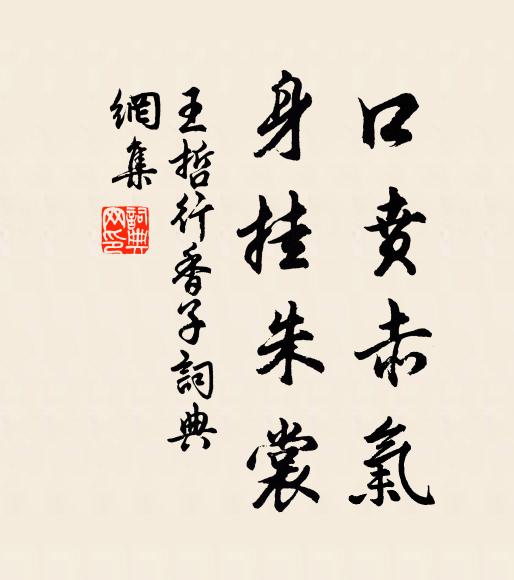 口賁赤氣
身挂朱裳
王哲行香子詞典
網集
詞典
网印